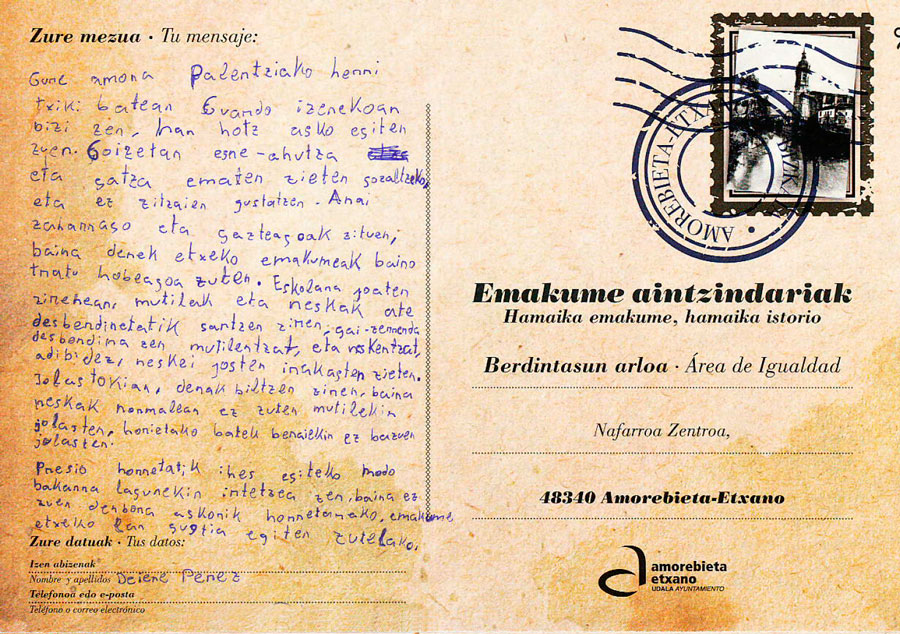 Zure mezua · Tu mensaje:
Gure amona Palentziako herri
txiki batean Guardo izenekoan
bizi zen, han hotz asko egiten
zuen. Goizetan esne-ahutza
eta gatza ematen zieten gozaltzeko,
eta ez zitzaien gustatzen. Anai
zaharrago eta gazteagoak zituen,
baina denek etxeko emakumeak baino
tratu hobeagoa zuten. Eskolara joaten
zirenean, mutilak eta neskak ate
desberdinetatik sartzen ziren, gai-zerrenda
desberdina zen mutilentzat, eta neskentzat,
adibidez, neskei josten irakasten zieten.
Jolastokian, denak biltzen ziren, baina
neskak normalean ez zuten mutilekin
jolasten, horietako batek beraiekin ez bazuen
jolasten.
Presio horretatik ihes egiteko modo
bakarra lagunekin irtetzea zen, baina ez
zuen denbora askorik horretarako, emakume
etxeko lan guztia egiten zutelako.
Zure datuak · Tus datos:
Izen abizenak
Nombre y apellidos Deiene Perez
Telefonoa edo e-posta
Teléfono o correo electrónico
AMOREBIETA-ETXANO
AMOREBIETA
Emakume aintzindariak
Hamaika emakume, hamaika istorio
Berdintasun arloa · Área de Igualdad
Nafarroa Zentroa,
48340 Amorebieta-Etxano
amorebieta
etxano
UDALA AYUNTAMIENTO